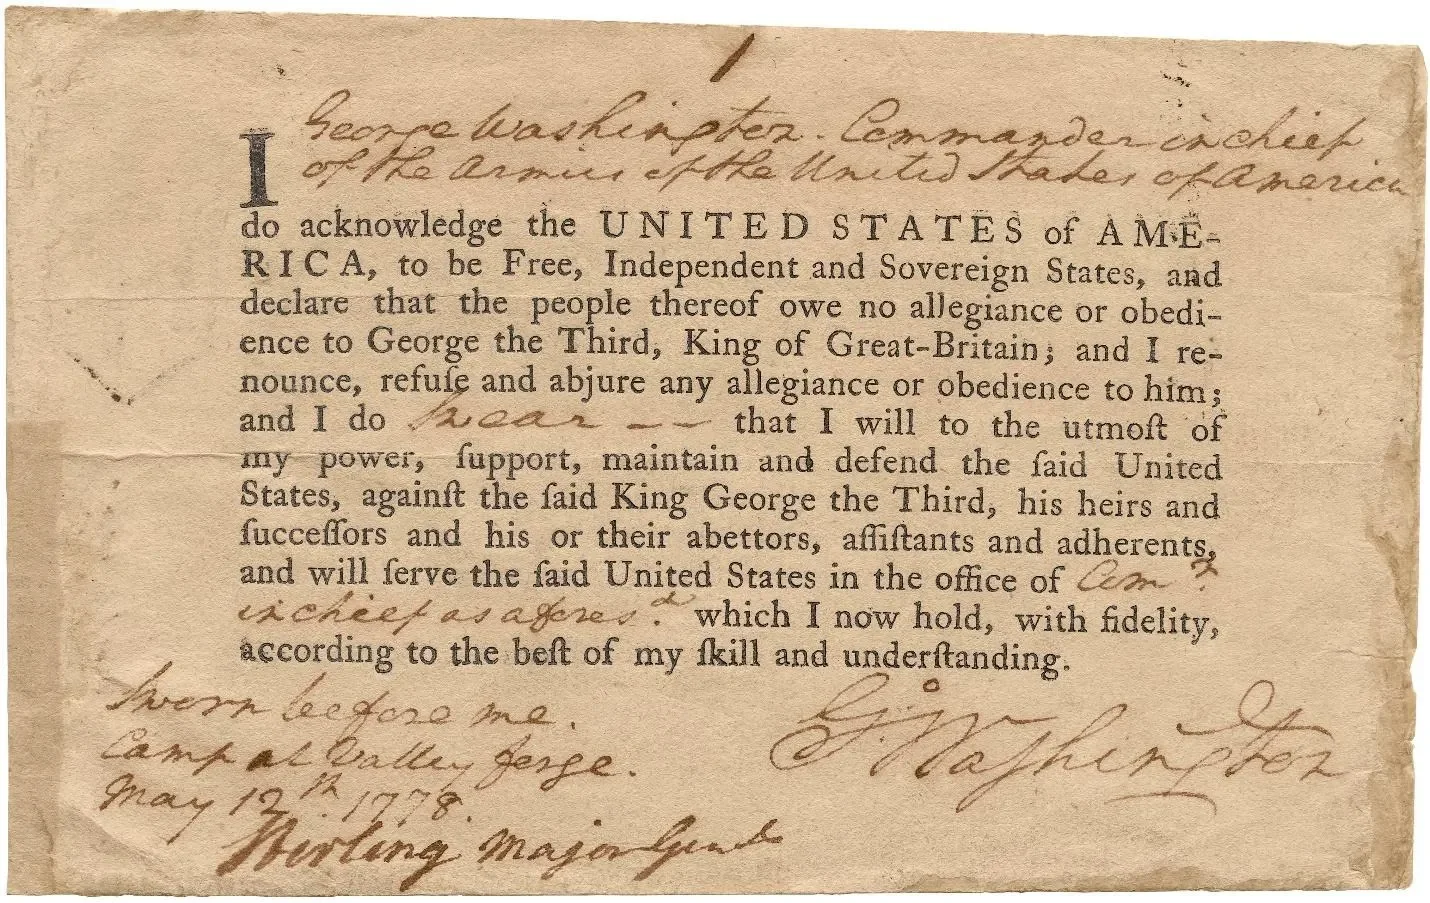 I George Washington. Commander in chief
of the Armies of the United States of America
do acknowledge the UNITED STATES of AME-
RICA, to be Free, Independent and Sovereign States, and
declare that the people thereof owe no allegiance or obedi-
ence to George the Third, King of Great-Britain; and I re-
nounce, refuſe and abjure any allegiance or obedience to him;
and I do Swear — — that I will to the utmoſt of
my power, ſupport, maintain and defend the ſaid United
States, againſt the ſaid King George the Third, his heirs and
ſucceſſors and his or their abettors, aſſiſtants and adherents,
and will ſerve the ſaid United States in the office of Comr.
in chief as aforesd. which I now hold, with fidelity,
according to the beſt of my ſkill and underſtanding.
Sworn before me.
Camp at Valley forge.
May 12th. 1778.
Stirling Major Genl
Go. Washington